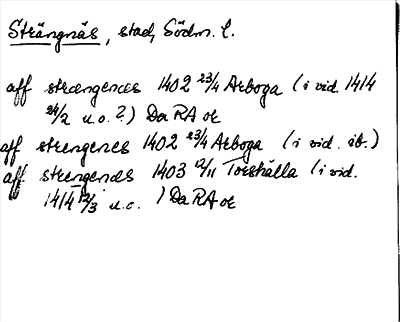 Strängnäs, stad, Södm. l.
aff strængenæs 1402 23/4 Arboga (i vid 1414
24/2 u.o.?) Da RA or
aff strengenes 1402 23/4 Arboga (i vid. ib.)
aff strengenæs 1403 12/11 Torshälla (i vid.
1414 12/3 u.o.) Da RA or